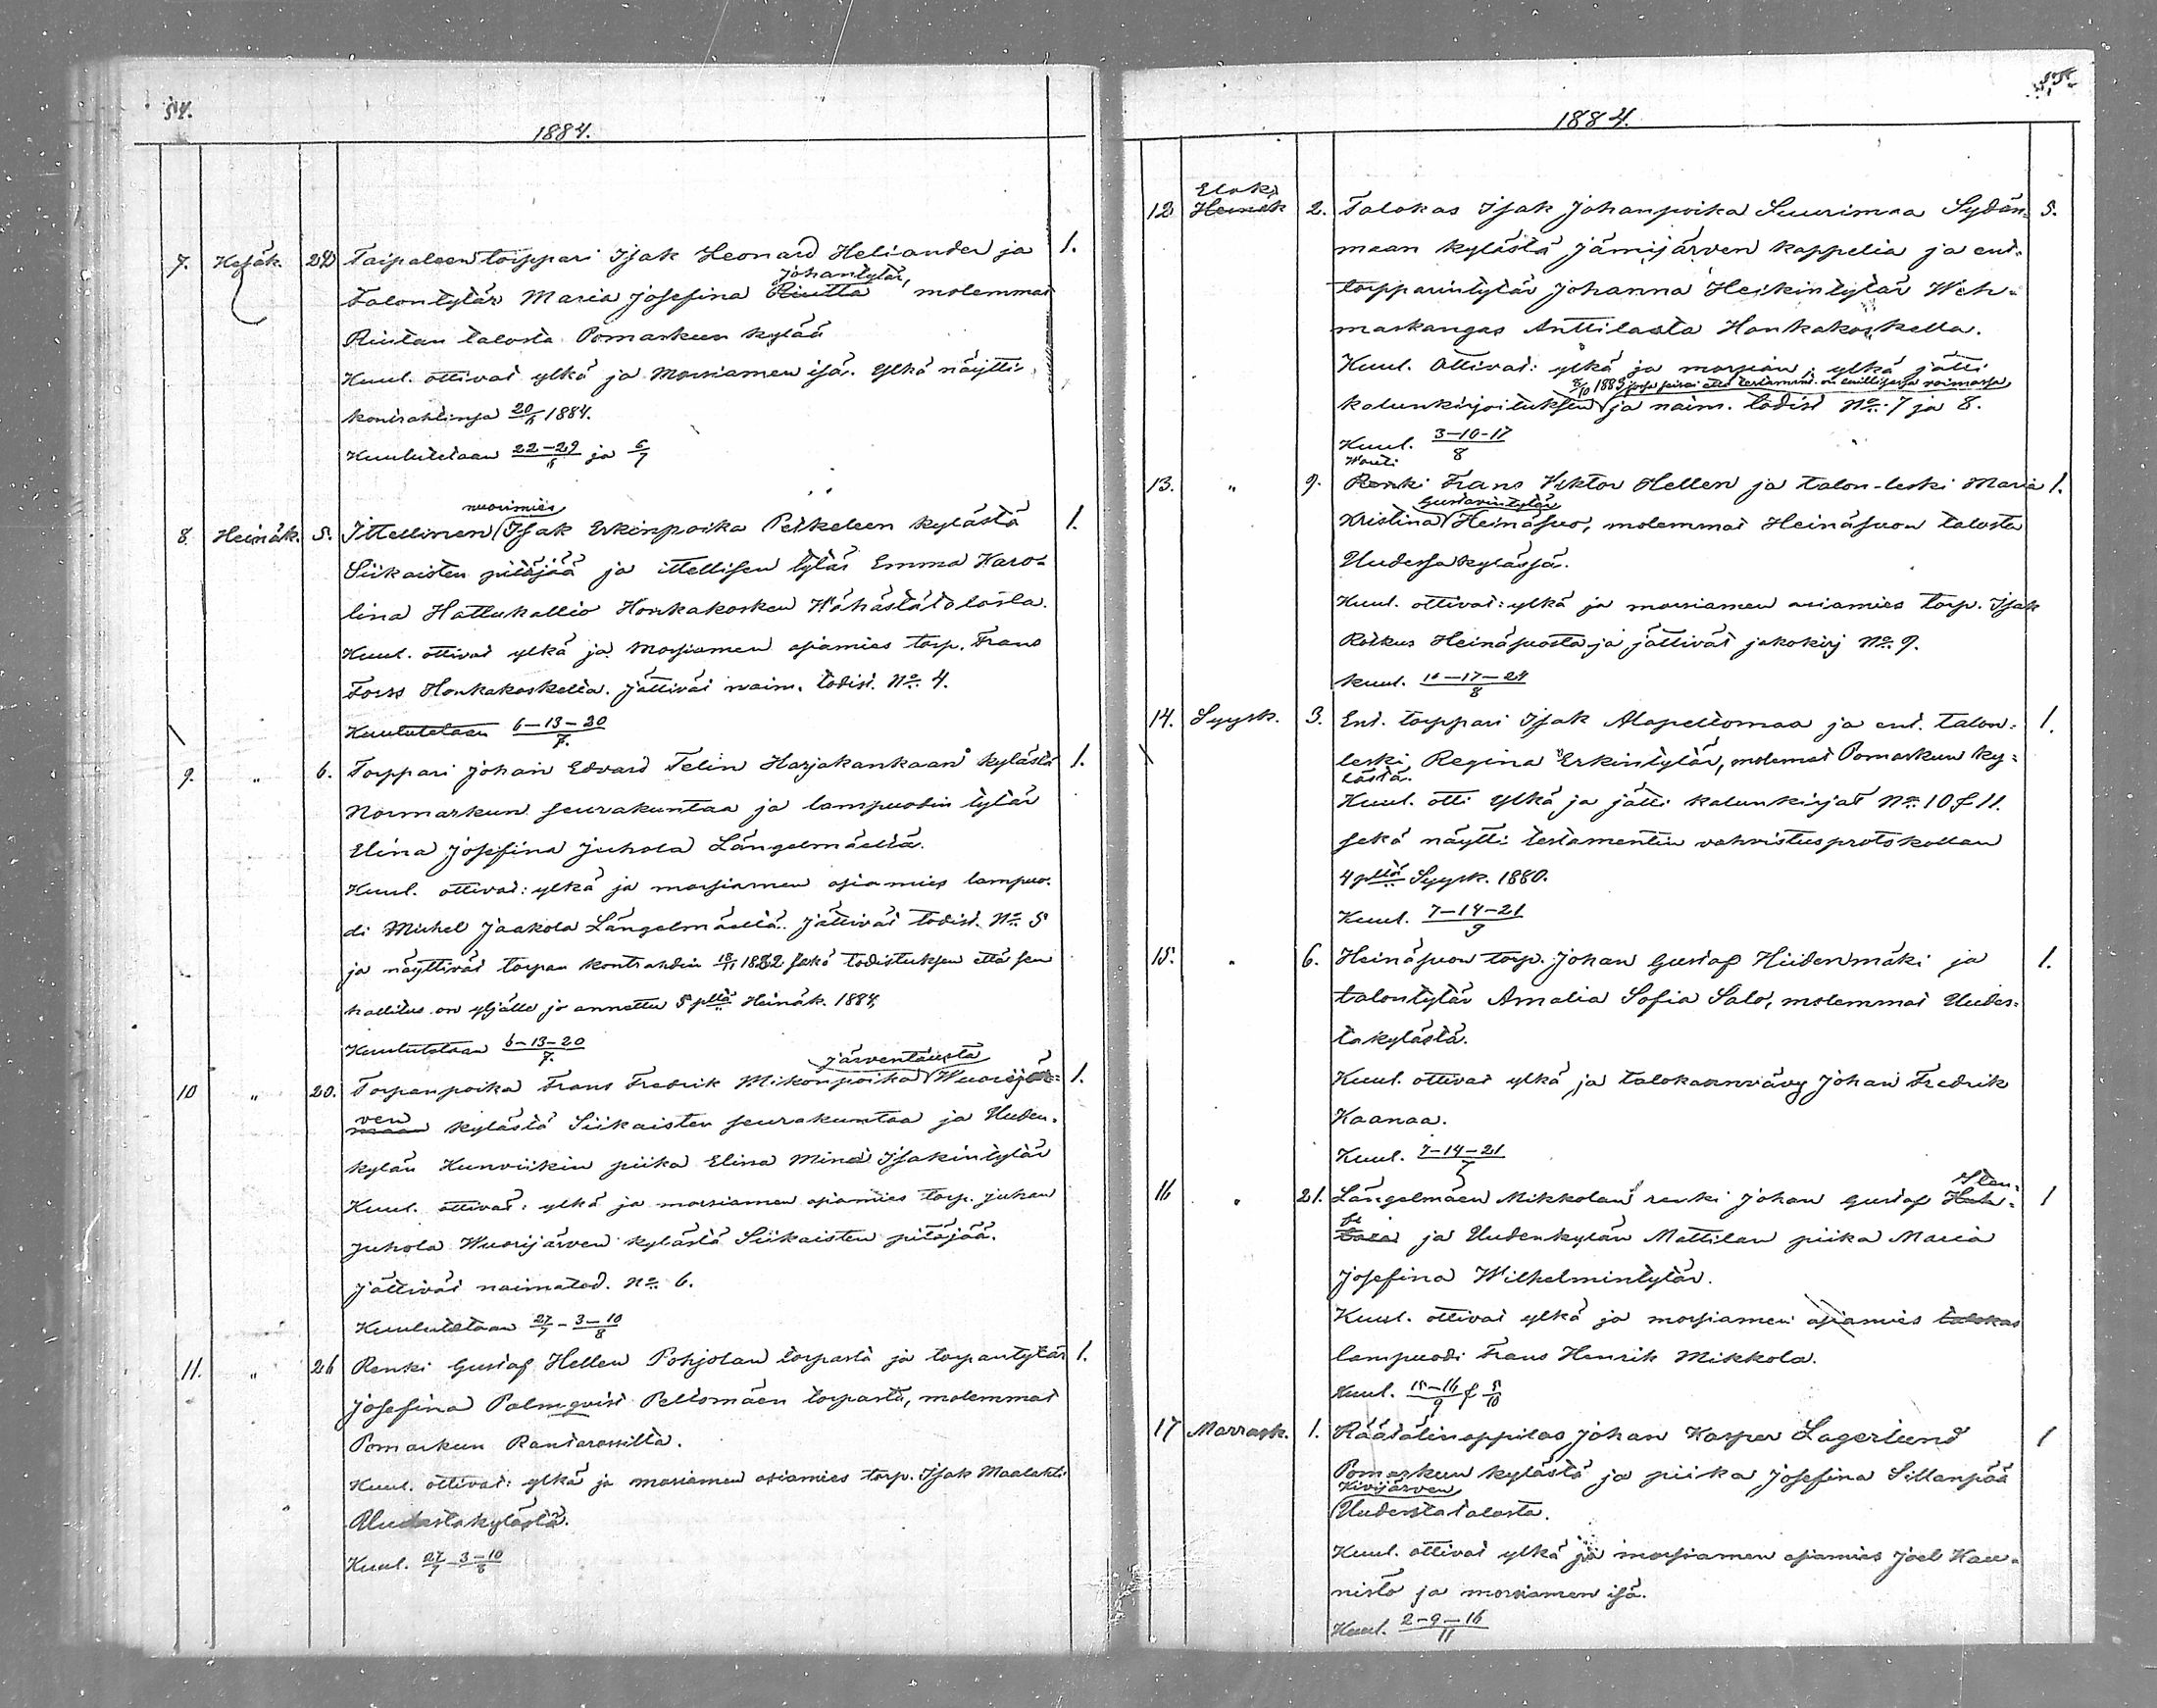 54.
1884.
7. Kesäk. 20 Taipaleen torppari Isak Leonard Heliander ja 1.
Johantytär,
talontytär Maria Josefina Riutta molemmat
Riutan talosta Pomarkun kylää
Kuul. ottivat ylkä ja morsiamen isä. Ylkä näytti
kontrahtinsa 20/6 1884.
Kuulutetaan 22-29/6 ja 6/7
nuorimies
8. Heinäk. 5. Ittellinen Isak Erkinpoika Peikeleen kylästä 1.
Siikaisten pitäjää ja ittellisen tytär Emma Karo-
lina Hattukallio Honkakosken Wähästätalosta.
Kuul. ottivat ylkä ja morsiamen asiamies torp. Frans
Forss Honkakoskelta. Jättivät naim. todist. No 4.
Kuulutetaan 6-13-20/7.
9. " 6. Torppari Johan Edvard Felin Harjakankaan kylästä 1.
Normarkun seurakuntaa ja lampuodin tytär
Elina Josefina Juhola Längelmäeltä.
Kuul. ottivat: ylkä ja morsiamen asiamies lampuo-
di Mikhel Jaakola Längelmäeltä. Jättivät todist. No 5
ja näyttivät torpan kontrahdin 18/11 1882 sekä todistuksen että sen
hallitus on yljälle jo annettu 5 pllä Heinäk. 1884.
Kuulutetaan 6-13-20/7.
Järventausta
10 " 20. Torpanpoika Frans Fredrik Mikonpoika Wuorijär- 1.
ven
maan kylästä Siikaisten seurakuntaa ja Uuden-
kylän Kunviikin piika Elina Mina Isakintytär
Kuul. ottivat: ylkä ja morsiamen asiamies torp. Juhan
Juhola Wuorijärven kylästä Siikaisten pitäjää.
Jättivät naimatod. No 6.
Kuulutetaan 27/7 - 3-10/8
11. " 26 Renki Gustaf Hellen Pohjolan torpasta ja torpantytär 1.
Josefina Palmqvist Peltomäen torpasta, molemmat
Pomarkun Rantarassilta.
Kuul. ottivat: ylkä ja morsiamen asiamies torp. Isak Maalahti
Uudestakylästä.
Kuul. 27/7 - 3-10/8
55.
1884.
Elok.
12 Heinäk 2. Talokas Isak Johanpoika Suurimaa Sydän- 5.
maan kylästä Jämijärven kappelia ja ent.
torpparintytär Johanna Heikintytär Weh-
maskangas Anttilasta Honkakoskella.
Kuul. Ottivat: ylkä ja morsian; ylkä jätti
8/10 1883, jossa seisoi että testamini. on laillisessa voimassa
kalunkirjoituksen ja naim. todist No 7 ja 8.
Kuul. 3-10-17/8
Wouti
13. " 9. Renki Frans Viktor Hellen ja talon-leski Maria 1.
Gustavintytär
Kristina Heinäsuo, molemmat Heinäsuon talosta
Uudessa kylässä.
Kuul. ottivat: ylkä ja morsiamen asiamies torp. Isak
Roikus Heinäsuosta ja jättivät jakokirj No 9.
Kuul. 10-17-24/8
14. Syysk. 3. Ent. torppari Isak Alapeltomaa ja ent. talon- 1.
leski Regina Erkintytär, molemat Pomarkun ky-
lästä.
Kuul. otti ylkä ja jätti kalunkirjat No 10 & 11.
sekä näytti testamentin vahvistusprotokollan
4 pltä Syysk. 1880.
Kuul. 7-14-21/9
15. " 6. Heinäsuon torp. Johan Gustaf Hiidenmäki ja 1.
talontytär Amalia Sofia Salo, molemmat Uudes-
takylästä.
Kuul. ottivat ylkä ja talokasvävy Johan Fredrik
Kaanaa.
Kuul. 7-14-21/9
16 " 21. Längelmäen Mikkolan renki Johan Gustaf 1
ja Uudenkylän Mattilan piika Maria
Josefina Wilhelmintytär.
Kuul. ottivat ylkä ja morsiamen asiamies talokas
lampuodi Frans Henrik Mikkola.
Kuul. & 5/10
17 Marrask. 1. Räätälinoppilas Johan Kasper Lagerlund 1
Pomarkun kylästä ja piika Josefina Sillanpää
Kivijärven
Uudestatalosta.
Kuul. ottivat ylkä ja morsiamen asiamies Joel Kau-
nisto ja morsiamen isä.
Kuul. 2-9-16/11